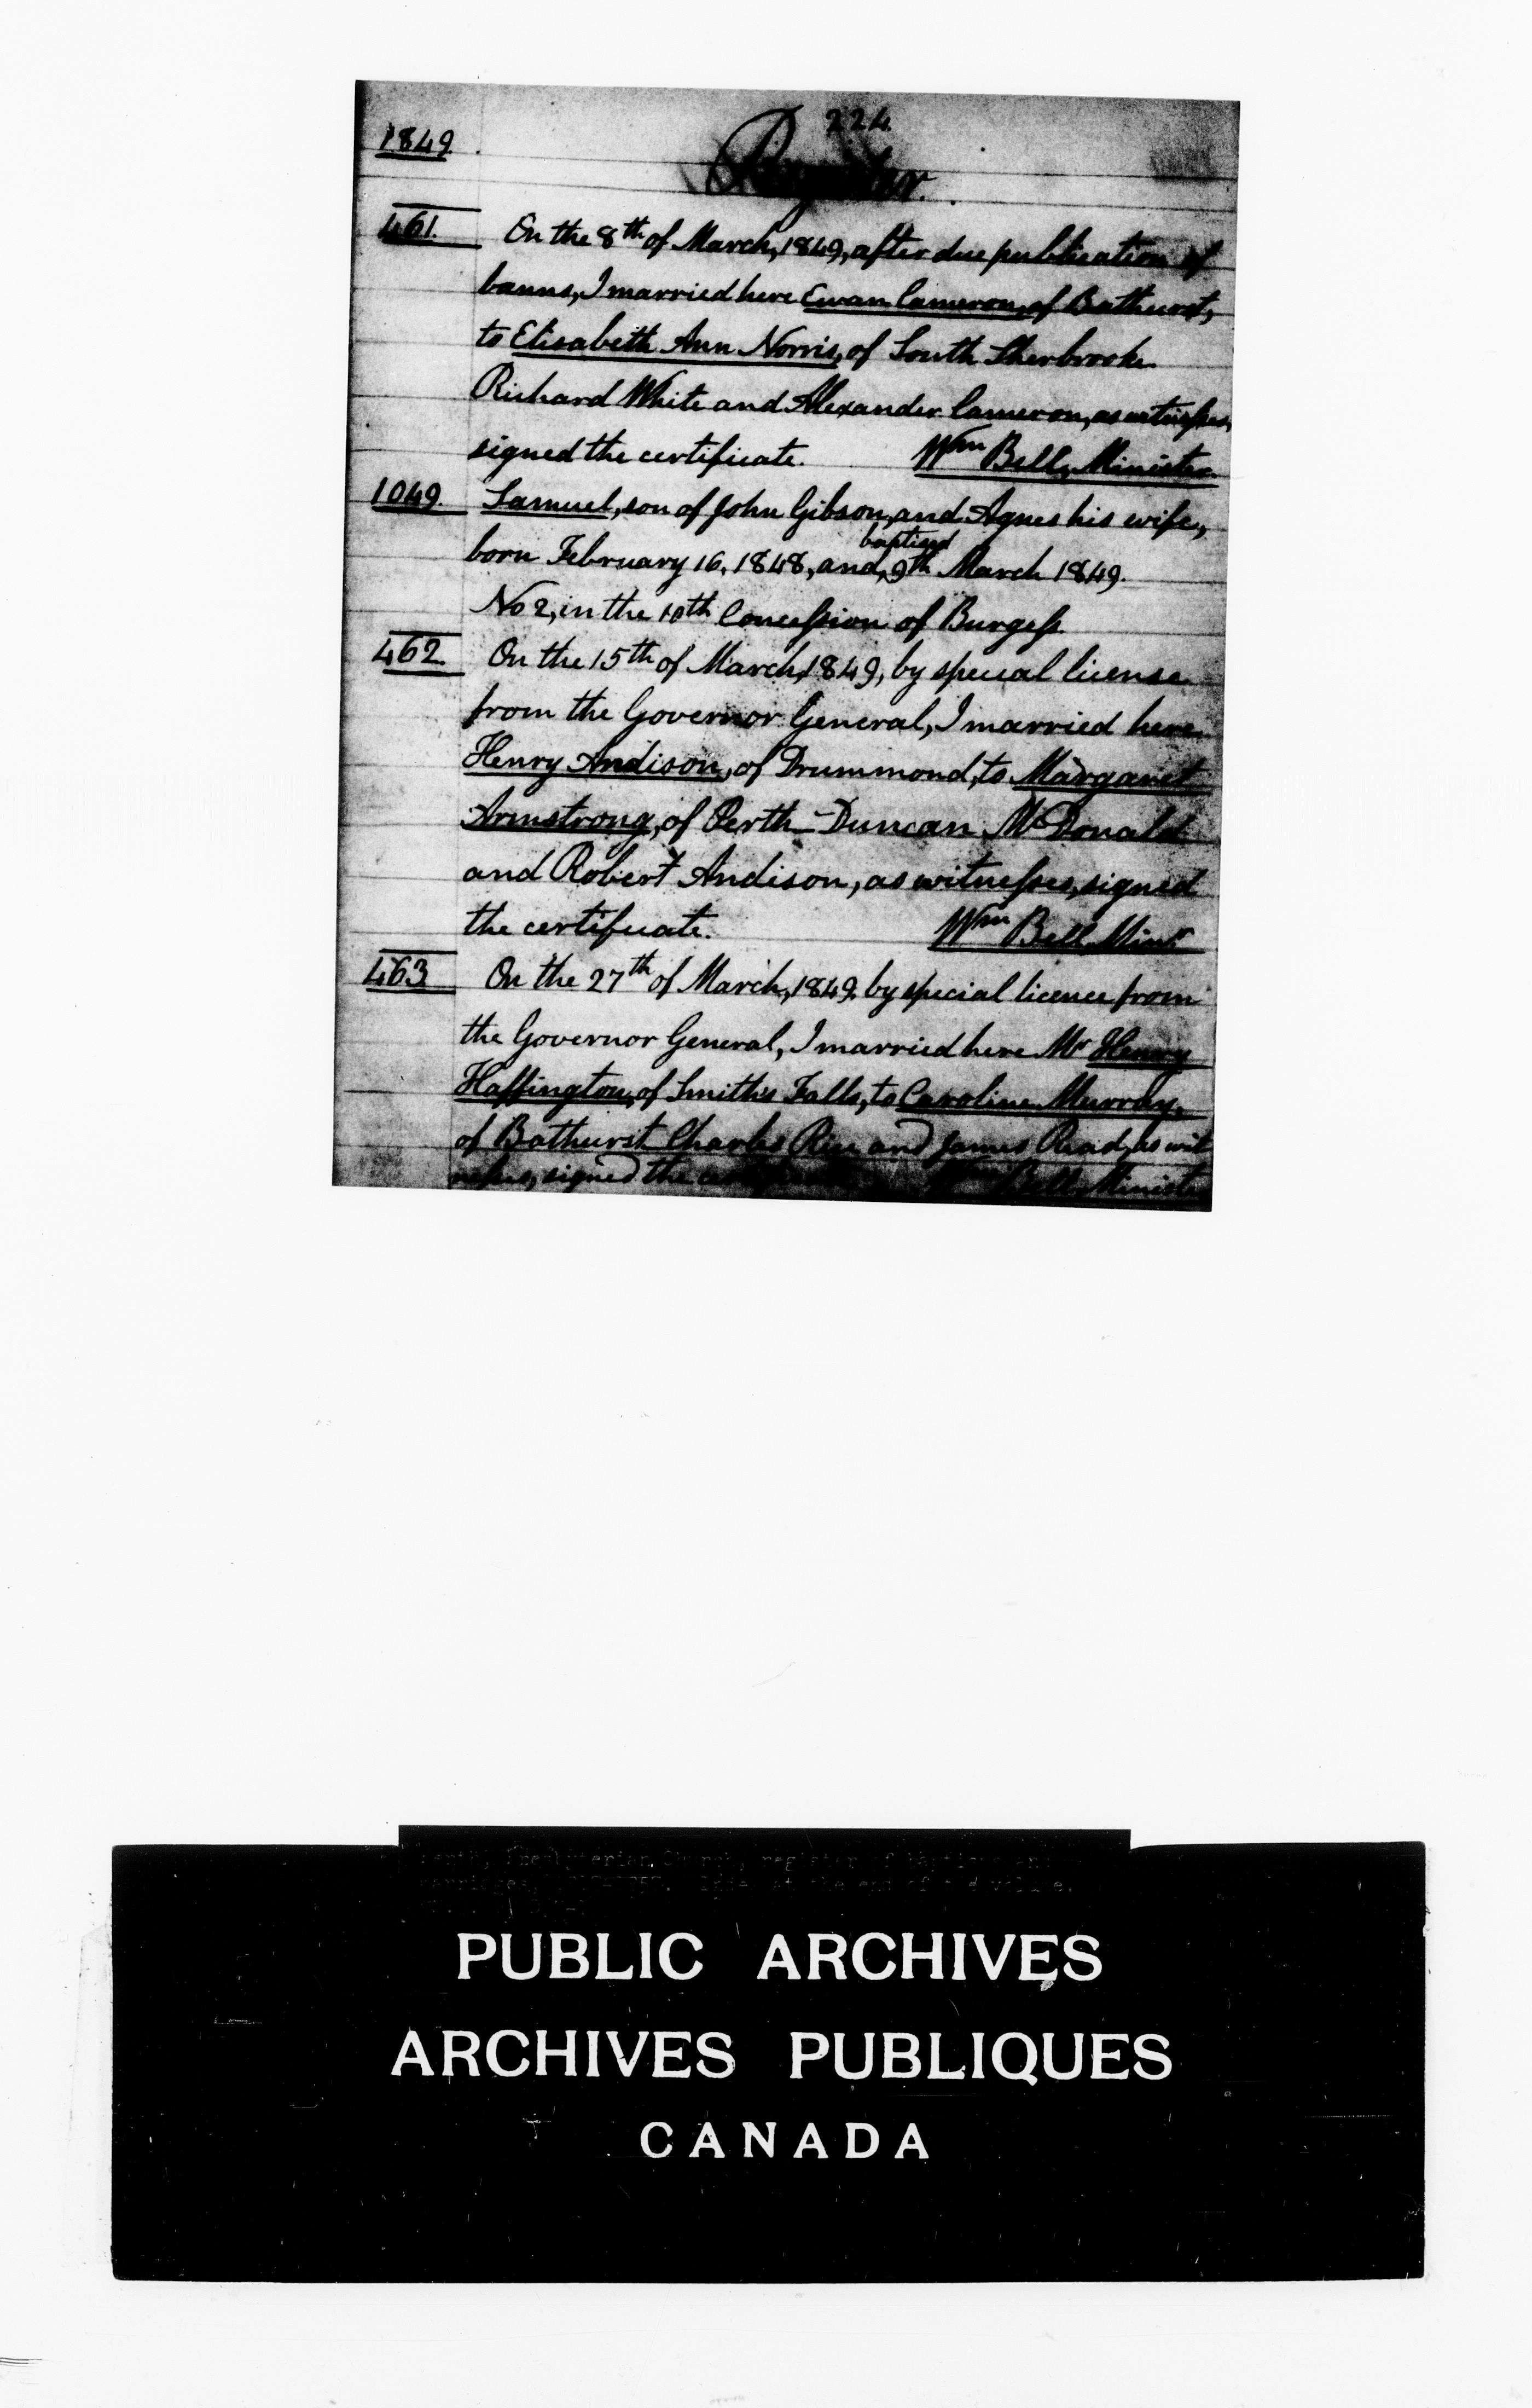 224
1849
Register.
461. On the 8th of March, 1849, after due publication of
banns, I married here Ewan Cameron, of Bathurst,
to Elisabeth Ann Norris, of South Sherbrooke.
Richard White and Alexander Cameron, as witnesses,
signed the certificate. Wm Bell, Minister.
1049. Samuel, son of John Gibson, and Agnes his wife,
born February 16, 1848, and baptised 9th March 1849.
No 2, in the 10th Concession of Burgess.
462. On the 15th of March, 1849, by special license
from the Governor General, I married here
Henry Andison, of Drummond, to Margaret
Armstrong, of Perth - Duncan McDonald
and Robert Andison, as witnesses, signed
the certificate. Wm Bell Minr
463 On the 27th of March, 1849, by special licence from
the Governor General, I married here Mr Henry
Haffington, of Smith's Falls, to Caroline Murray,
of Bathurst. Charles Rice and James Read, as wit
nesses, signed the Wm Bell, Minister
Presbyterian Church, register of baptisms and
at the end of the volume.
PUBLIC ARCHIVES
ARCHIVES PUBLIQUES
CANADA